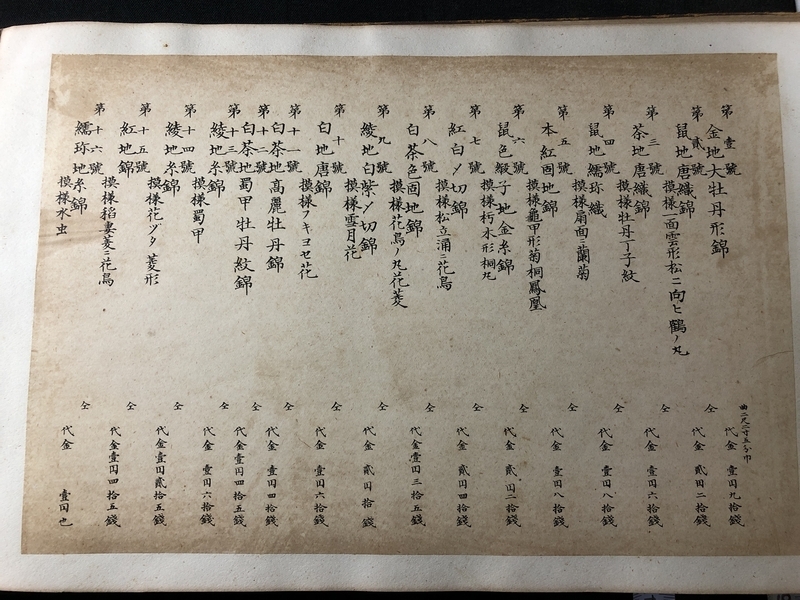 第壹號
金地大牡丹形錦
曲二尺二寸五分巾
代金 壹円九拾錢
第貳號
鼠地唐織錦
模様一面雲形松ニ向ヒ鶴ノ丸
仝
代金 貳円二拾錢
第三號
茶地唐織錦
模様牡丹丁子紋
仝
代金 壹円六拾錢
第四號
鼠地繻珍織
模様扇面ニ蘭菊
仝
代金 壹円八拾錢
第五號
本紅固地錦
模様龜甲形菊桐鳳凰
仝
代金 壹円八拾錢
第六號
鼠色緞子地金糸錦
模様朽木形桐丸
仝
代金 貳円二拾錢
第七號
紅白〆切錦
模様松立涌ニ花鳥
仝
代金 貳円四拾錢
第八號
白茶色固地錦
模様花鳥ノ丸花菱
仝
代金壹円三拾五錢
第九號
綾地白紫〆切錦
模様雪月花
仝
代金 貳円拾錢
第十號
白地唐錦
模様フキヨセ花
仝
代金 壹円六拾錢
第十一號
白茶地高麗牡丹錦
仝
代金 壹円四拾錢
第十二號
白茶地蜀甲牡丹紋錦
仝
代金壹円四拾五錢
第十三號
綾地糸錦
模様蜀甲
仝
代金 壹円六拾錢
第十四號
綾地糸錦
模様花ヅタ菱形
仝
代金壹円貳拾五錢
第十五號
紅地錦
模様稻妻菱ニ花鳥
仝
代金壹円四拾五錢
第十六號
繻珍地糸錦
模様水虫
仝
代金 壹円也